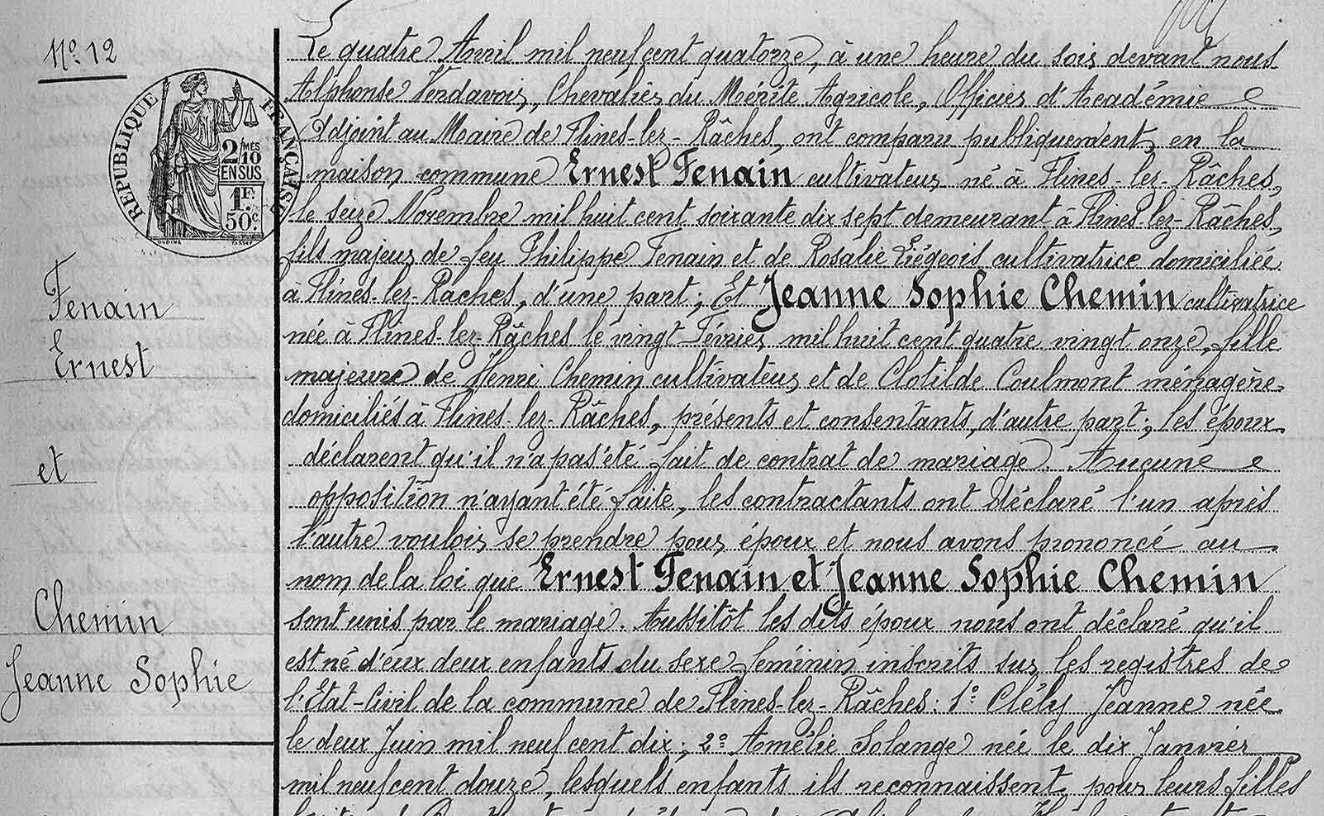 N° 12
REPUBLIQUE FRANÇAISE
2/10 MES
EN SUS
1F.
50c.
Fenain
Ernest
et
Chemin
Jeanne Sophie
Le quatre Avril mil neuf cent quatorze, à une heure du soir devant nous
Alphonse Vendavoir, Chevalier du Mérite Agricole, Officier d'Académie
Adjoint au Maire de Flines-lez-Râches, ont comparu publiquement en la
maison commune Ernest Fenain cultivateur né à Flines-lez-Râches,
le seize Novembre mil huit cent soixante dix sept demeurant à Flines-lez-Râches,
fils majeur de feu Philippe Fenain et de Rosalie Liégeois cultivatrice domiciliée
à Flines-lez-Raches, d'une part; Et Jeanne Sophie Chemin cultivatrice
née à Flines-lez-Râches le vingt Février mil huit cent quatre vingt onze, fille
majeure de Henri Chemin cultivateur et de Clotilde Coulmont ménagère
domiciliés à Flines-lez-Râches, présents et consentants, d'autre part; les époux
déclarent qu'il n'a pas été fait de contrat de mariage. Aucune
opposition n'ayant été faite, les contractants ont déclaré l'un après
l'autre vouloir se prendre pour époux et nous avons prononcé au
nom de la loi que Ernest Fenain et Jeanne Sophie Chemin
sont unis par le mariage. Aussitôt les dits époux nous ont déclaré qu'il
est né d'eux deux enfants du sexe féminin inscrits sur les registres de
l'Etat-Civil de la commune de Flines-lez-Râches: 1° Clély Jeanne née
le deux Juin mil neuf cent dix; 2° Amélie Solange née le dix Janvier
mil neuf cent douze, lesquels enfants ils reconnaissent pour leurs filles